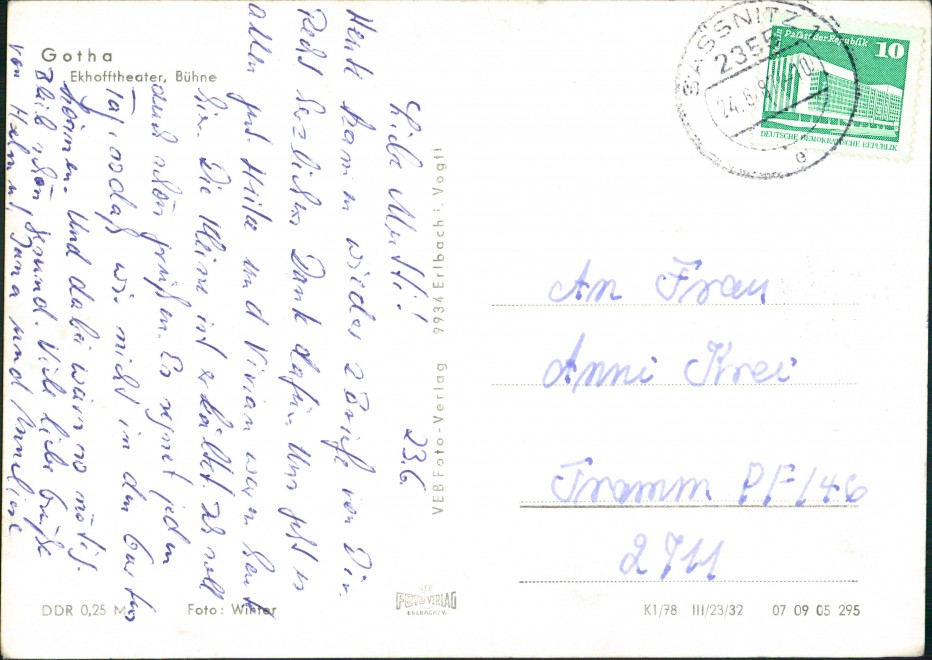 Gotha
Ekhofftheater, Bühne
Liebe Mutti! 23.6.
Heute kamen wieder 2 Briefe von Dir.
Recht herzlichen Dank dafür. Uns geht es
allen gut. und Vivian waren heute
hier. Die Kleine ist erkältet. Ich soll
auch schön grüßen. Es regnet jeden
Tag, sodaß wir nicht in den Garten
können. Und dabei wäre es nötig.
Bleib schön gesund. Viele liebe Grüße
von Helmut, Jana und Anneliese
VEB Foto-Verlag 9934 Erlbach i. Vogtl
SASSNITZ 1
2355
24.6.8
e
Palast der Republik 10
DEUTSCHE DEMOKRATISCHE REPUBLIK
An Frau
Anni Krei
Tramm PF/146
2711
DDR 0,25 M
Foto: Winter
VEB
FOTO VERLAG
ERLBACH/V.
K1/78 III/23/32 07 09 05 295